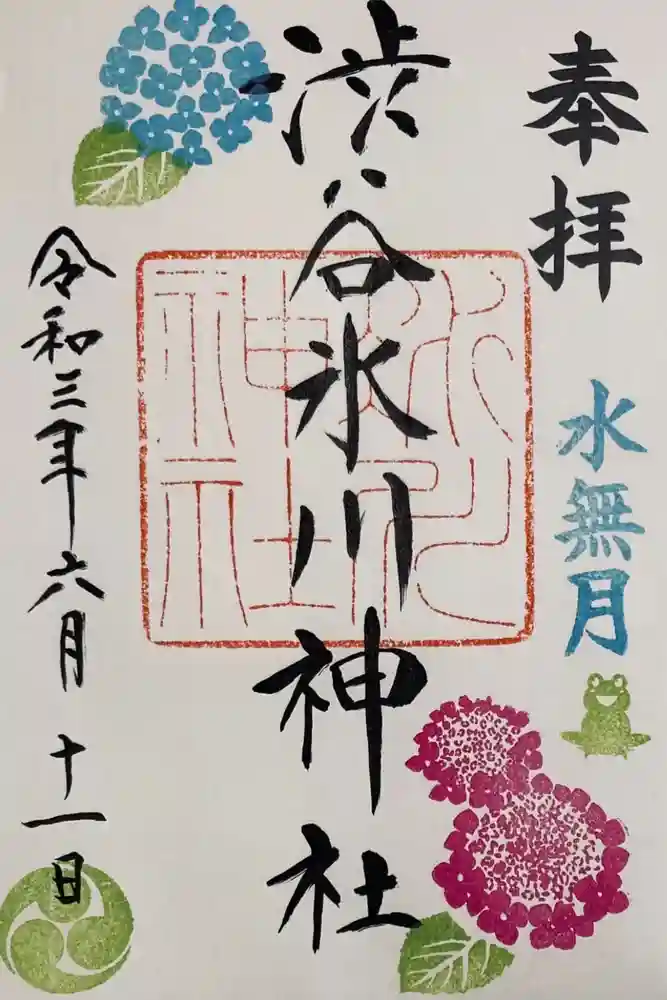 奉拝
水無月
渋谷氷川神社
令和三年六月十一日